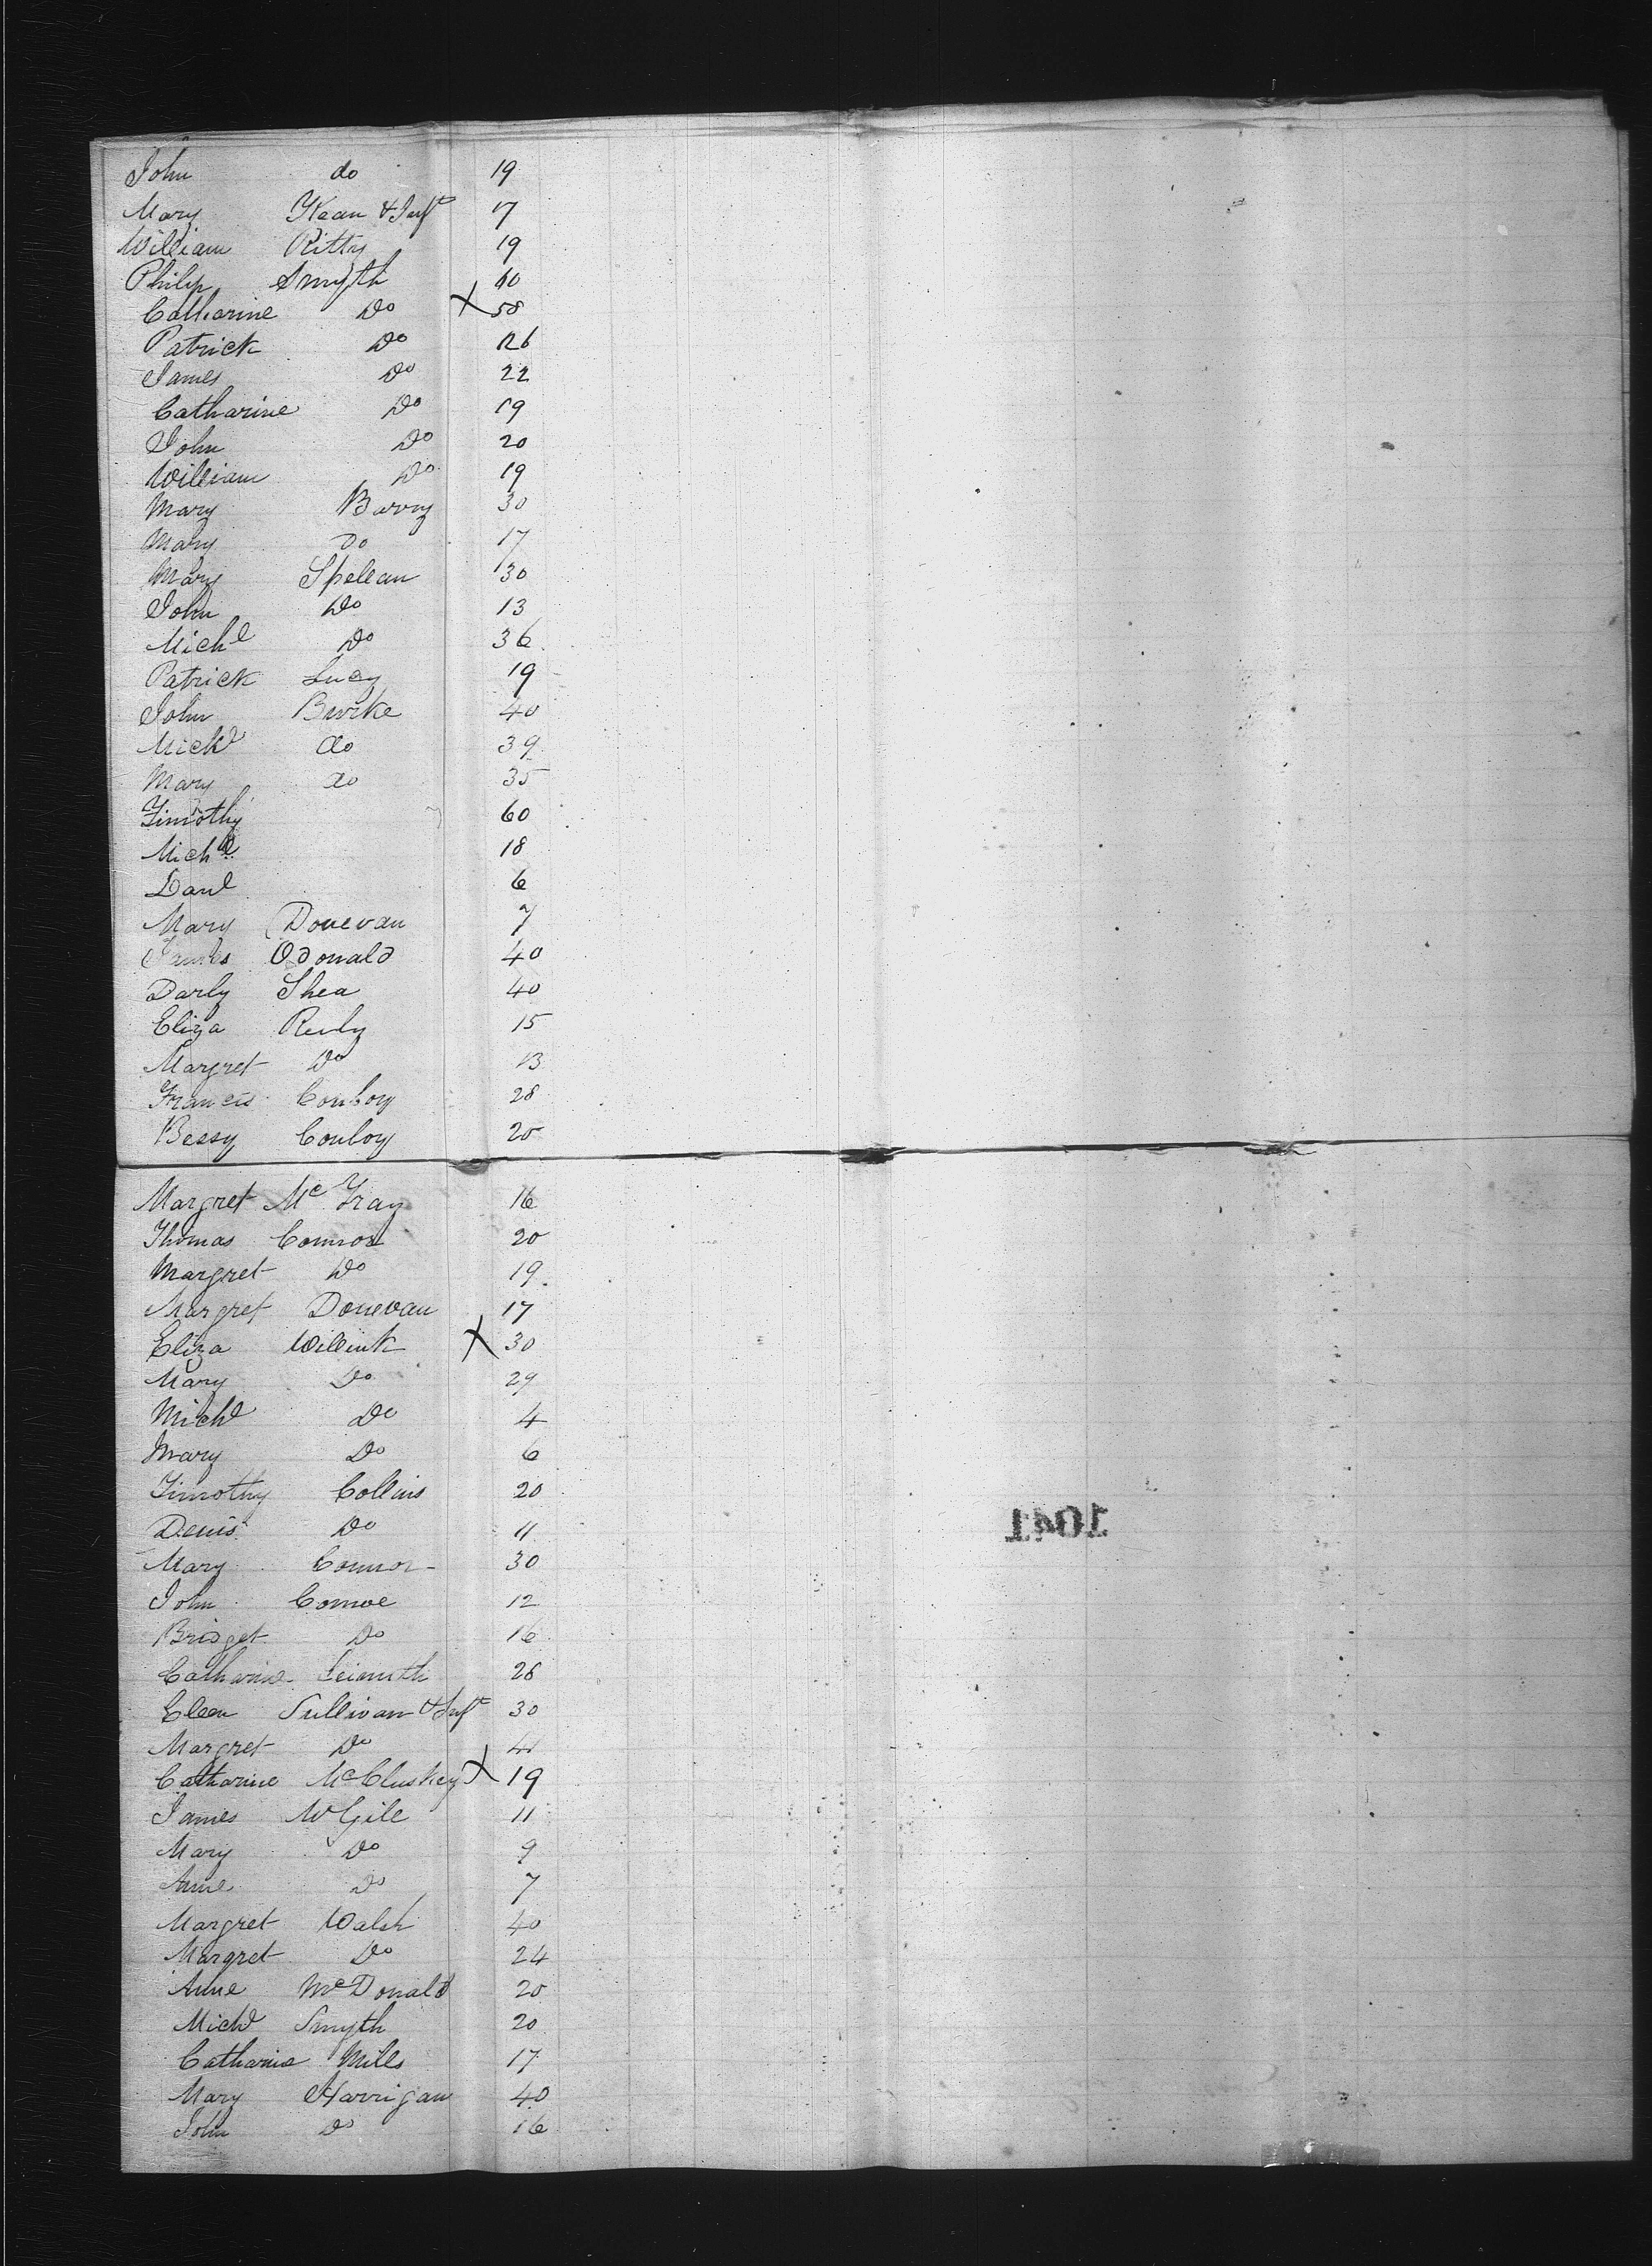 John do 19
Mary Kean & Inft 17
William Ritty 19
Philip Smyth 60
Catharine Do X 58
Patrick Do 26
James Do 22
Catharine Do 19
John Do 20
William Do 19
Mary Barry 30
Mary Do 17
Mary Spelean 30
John Do 13
Michl Do 36
Patrick Lucy 19
John Burke 40
Michl do 39
Mary do 35
Timothy 60
Michl 18
Danl 6
Mary Donevan 7
James ODonald 40
Darly Shea 40
Eliza Reily 15
Margret Do 13
Francis Conboy 28
Bessy Conboy 20
Margret Mc 16
Thomas Connor 20
Margret Do 19
Margret Donevan 17
Eliza X 30
Mary Do 29
Michl Do 4
Mary Do 6
Timothy Collins 20
Denis Do 11
Mary Connor 30
John 12
Bridget Do 16
Catharine 26
Ellen Sullivan & Inft 30
Margret Do
Catharine McCluskey X 19
James McGill 11
Mary Do 9
Anne Do 7
Margret Walsh 40
Margret Do 24
Anne McDonald 20
Michl Smyth 20
Catharine Mills 17
Mary Harrigan 40
John Do 16
1041